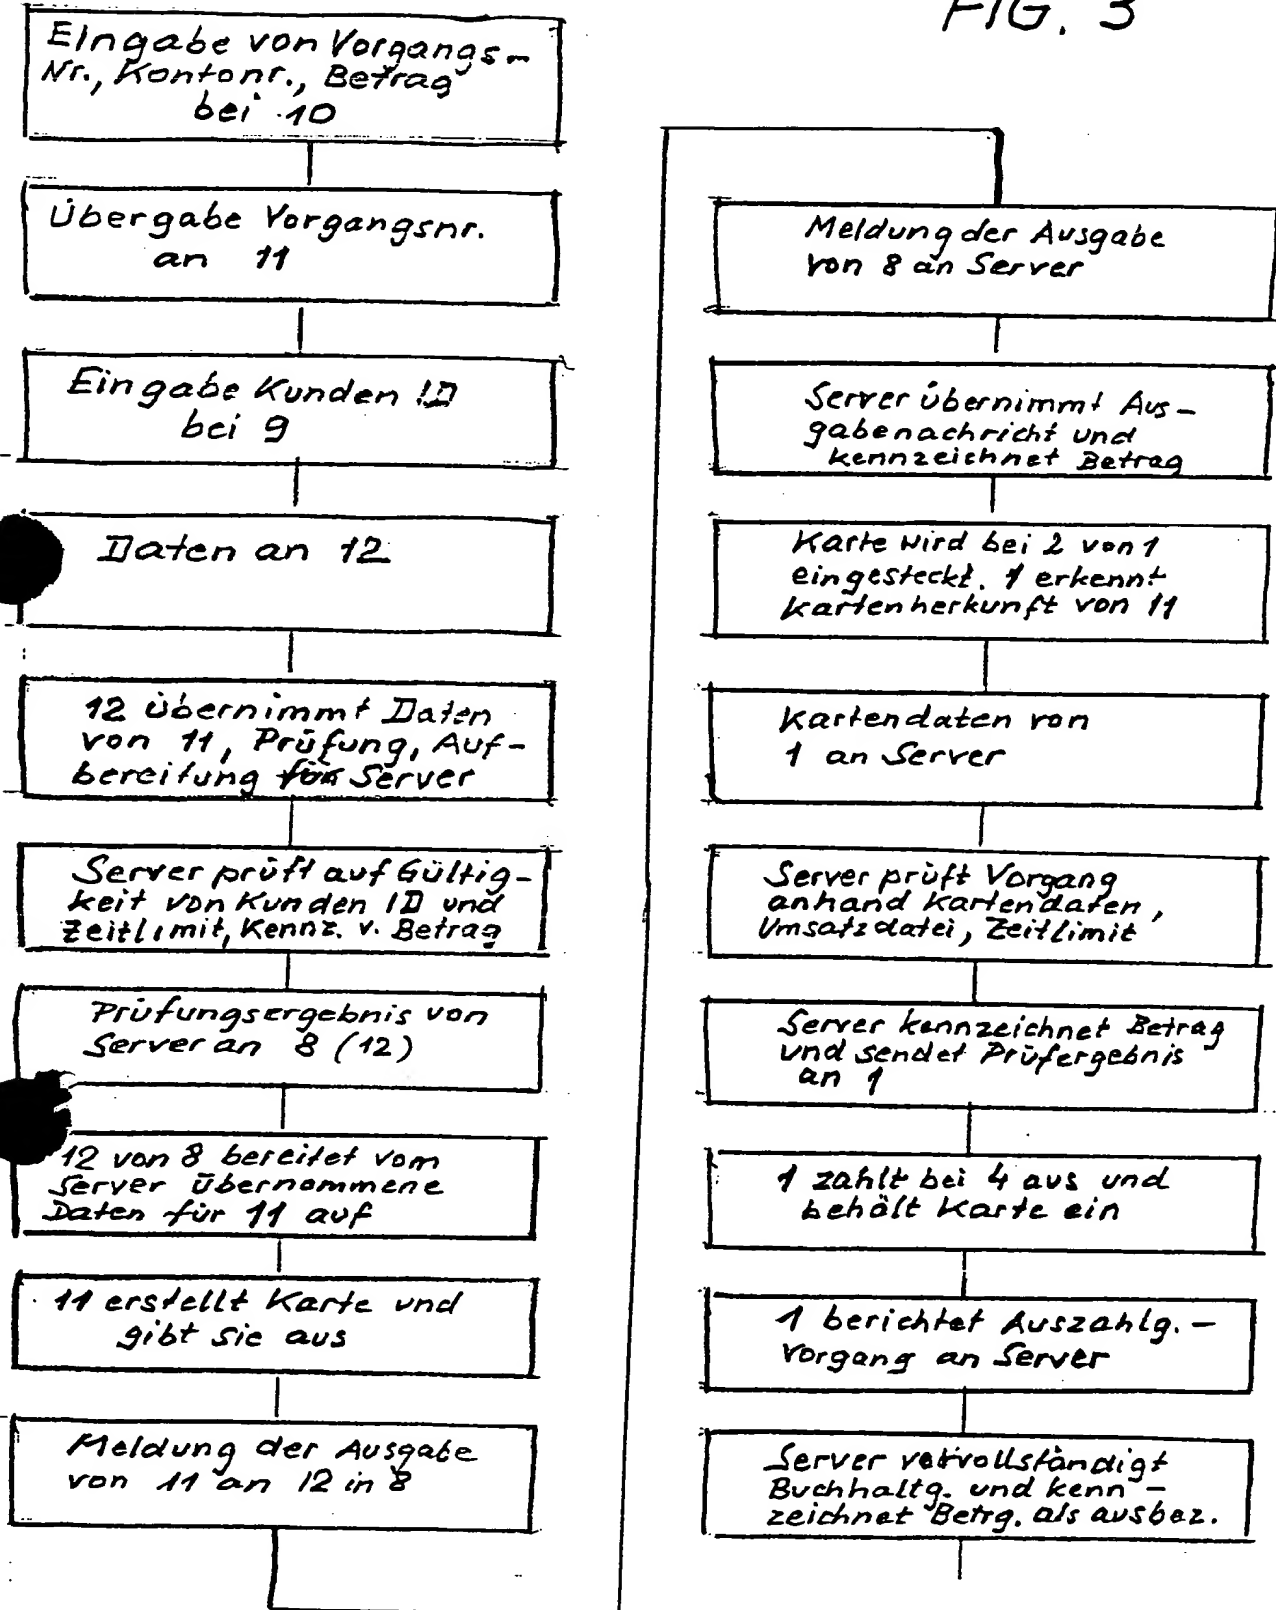 FIG. 3
Eingabe von Vorgangs-
Nr., Kontonr., Betrag
bei 10
Übergabe Vorgangsnr.
an 11
Eingabe Kunden ID
bei 9
Daten an 12
12 übernimmt Daten
von 11, Prüfung, Auf-
bereitung für Server
Server prüft auf Gültig-
keit von Kunden ID und
Zeitlimit, Kennz. v. Betrag
Prüfungsergebnis von
Server an 8 (12)
12 von 8 bereitet vom
Server übernommene
Daten für 11 auf
11 erstellt Karte und
gibt sie aus
Meldung der Ausgabe
von 11 an 12 in 8
Meldung der Ausgabe
von 8 an Server
Server übernimmt Aus-
gabenachricht und
kennzeichnet Betrag
Karte wird bei 2 von 1
eingesteckt. 1 erkennt
Kartenherkunft von 11
Kartendaten von
1 an Server
Server prüft Vorgang
anhand Kartendaten,
Umsatzdatei, Zeitlimit
Server kennzeichnet Betrag
und sendet Prüfergebnis
an 1
1 zahlt bei 4 aus und
behält Karte ein
1 berichtet Auszahlg.-
Vorgang an Server
Server vervollständigt
Buchhaltg. und kenn-
zeichnet Betrg. als ausbez.